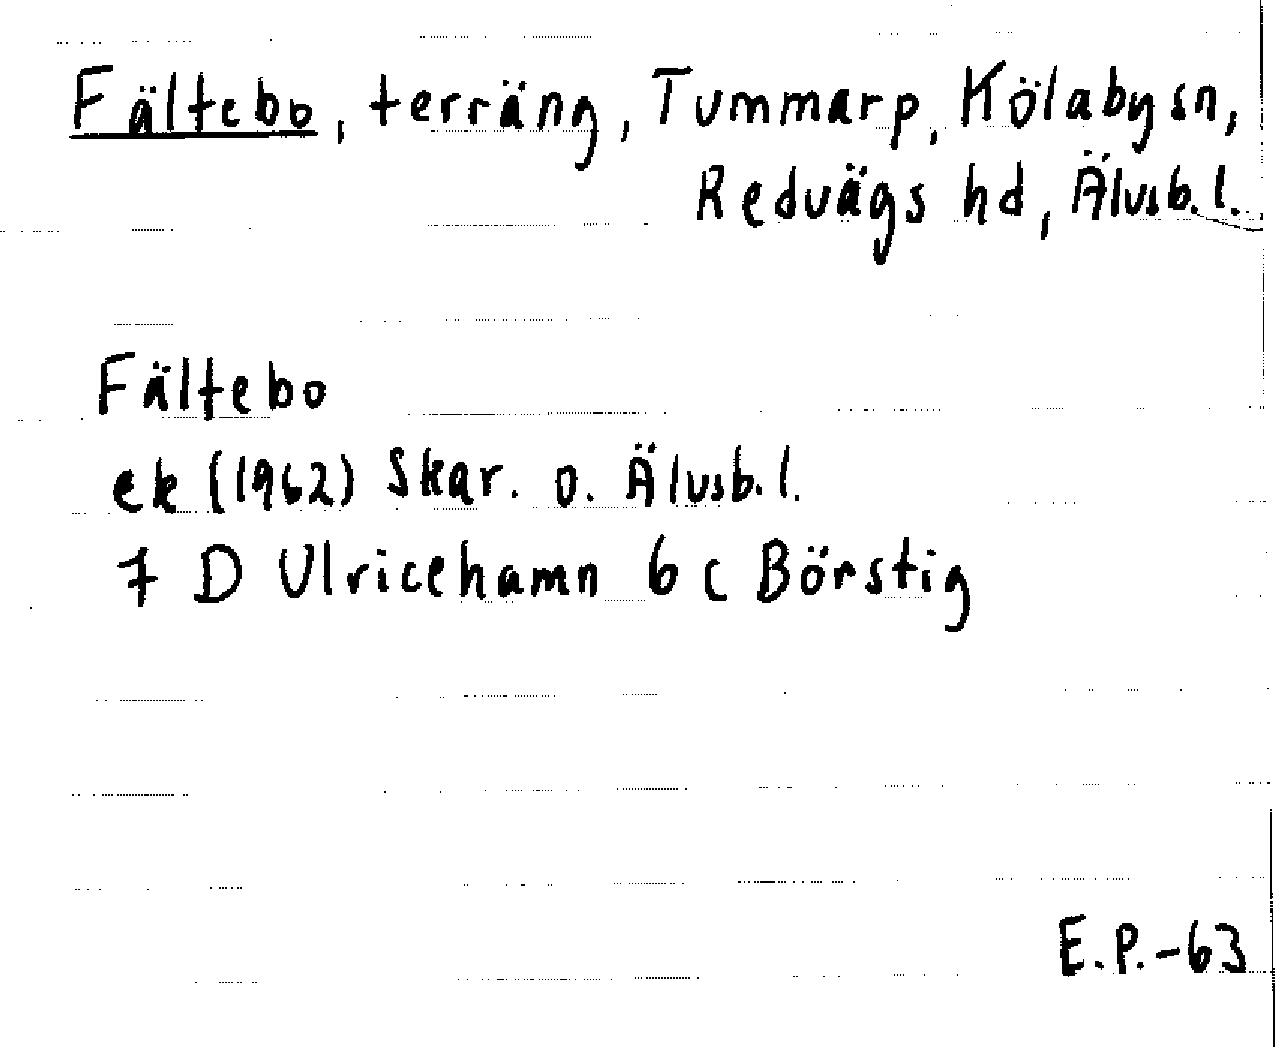 Fältebo, terräng, Tummarp, Kölabysn,
Redvägs hd, Älvsb. l.
Fältebo
ek (1962) Skar. o. Älvsb. l.
7 D Ulricehamn 6 c Börstig
E.P.-63